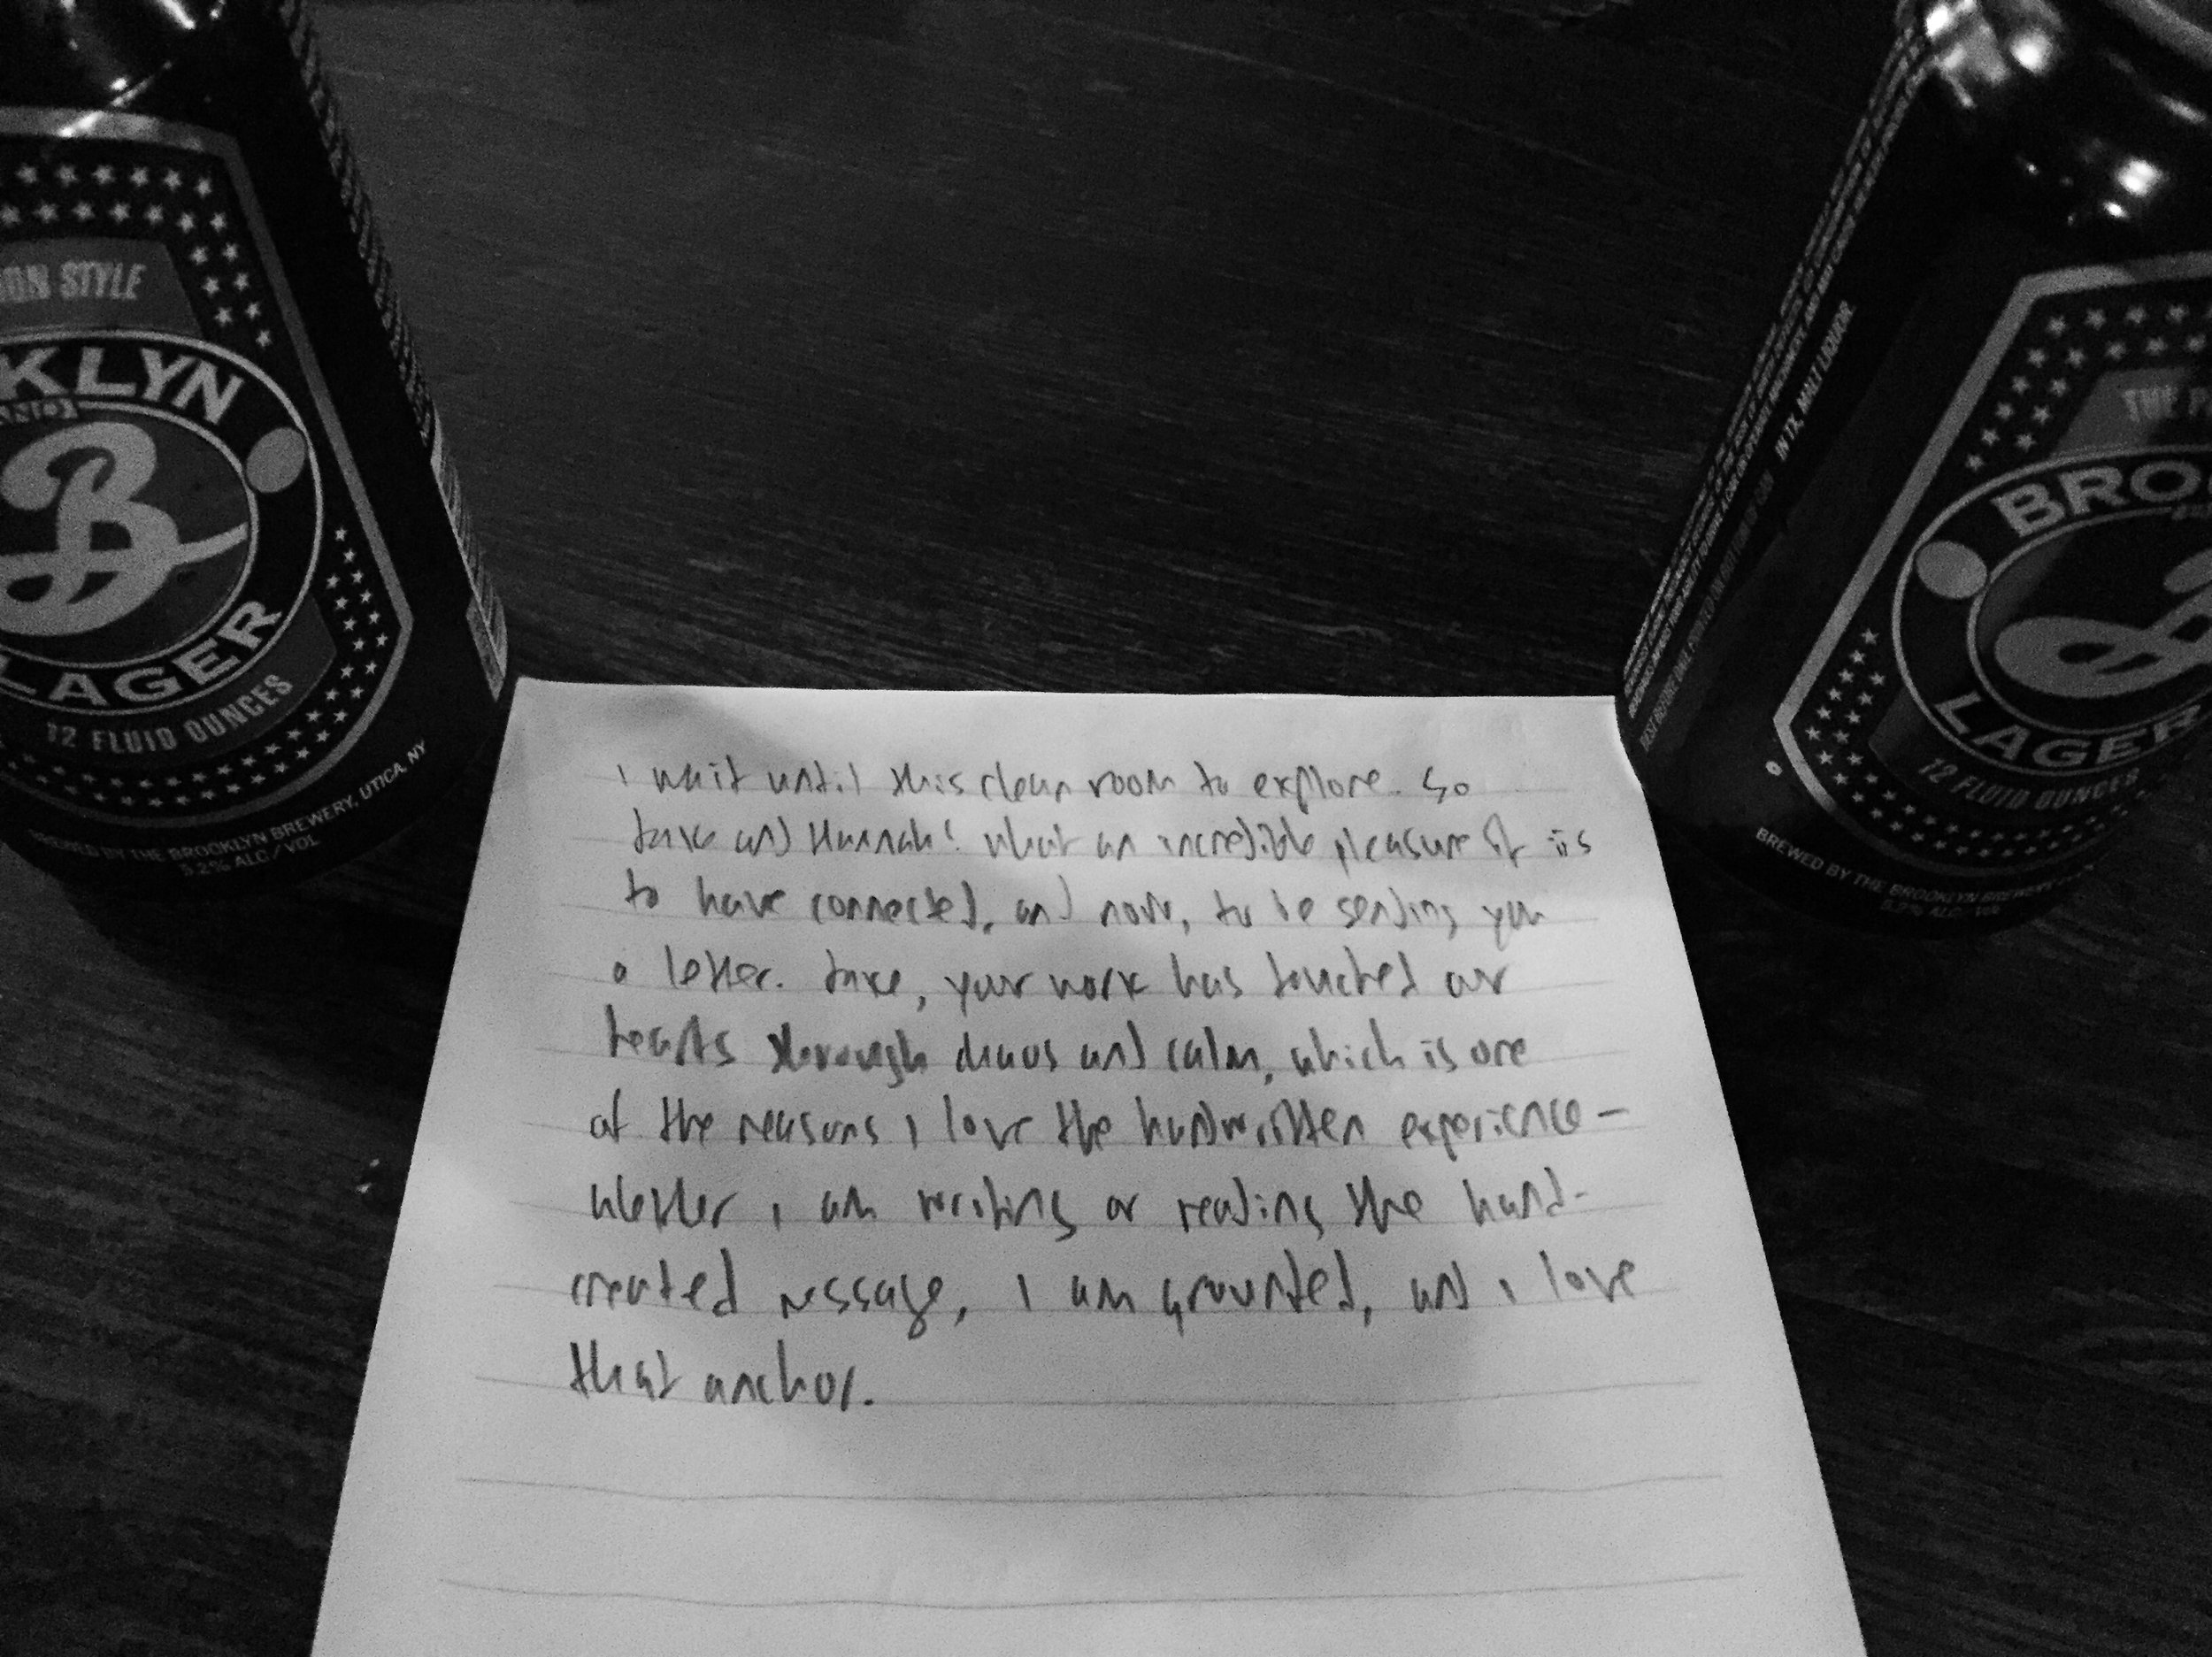 ON STYLE
KLYN
B
LAGER
12 FLUID OUNCES
BREWED BY THE BROOKLYN BREWERY, UTICA, NY
5.2% ALC/VOL
IN TX, MALT LIQUOR
THE P
BRO
LAGER
12 FLUID OUNCES
BREWED BY THE BROOKLYN BREWERY
5.2% ALC/VOL
I wait until this clean room to explore. So
Jake and Hannah! What an incredible pleasure it is
to have connected, and now, to be sending you
a letter. Jake, your work has touched our
hearts through chaos and calm, which is one
of the reasons I love the handwritten experience—
whether I am writing or reading the hand-
created message, I am grounded, and I love
that anchor.